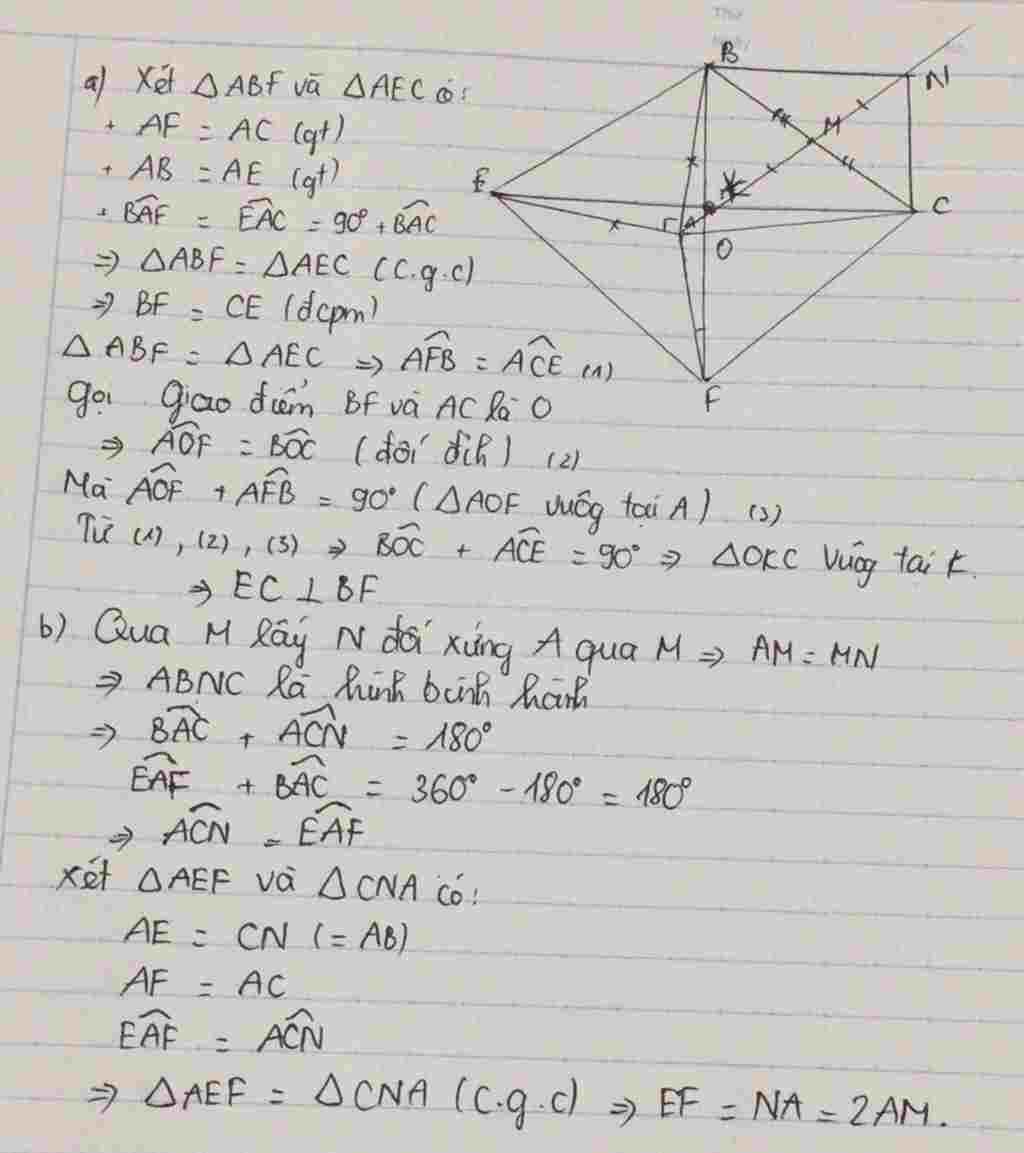 Thứ
a) Xét △ABF và △AEC có:
+ AF = AC (gt)
+ AB = AE (gt)
+ BAF̂ = EAĈ = 90° + BAĈ
⇒ △ABF = △AEC (c.g.c)
⇒ BF = CE (đcpm)
△ABF = △AEC ⇒ AFB̂ = ACÊ (1)
Gọi giao điểm BF và AC là O
⇒ AOF̂ = BOĈ (đối đỉh) (2)
Mà AOF̂ + AFB̂ = 90° (△AOF vuôg tại A) (3)
Từ (1), (2), (3) ⇒ BOĈ + ACÊ = 90° ⇒ △OKC Vuôg tại K.
⇒ EC ⊥ BF
b) Qua M lấy N đối xứng A qua M ⇒ AM = MN
⇒ ABNC là hình bình hành
⇒ BAĈ + ACN̂ = 180°
EAF̂ + BAĈ = 360° - 180° = 180°
⇒ ACN̂ = EAF̂
Xét △AEF và △CNA có:
AE = CN (= AB)
AF = AC
EAF̂ = ACN̂
⇒ △AEF = △CNA (c.g.c) ⇒ EF = NA = 2AM.
B
N
M
E
K
C
A
O
F